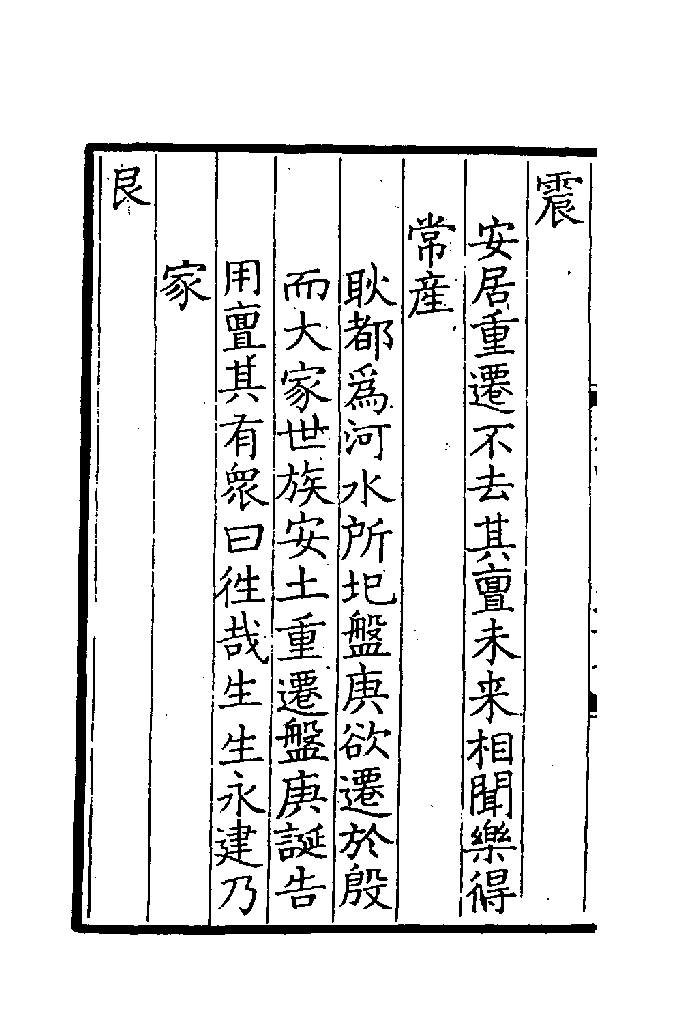 震
安居重遷不去其亶未来相聞樂得
常産
耿都為河水所圮盤庚欲遷於殷
而大家世族安土重遷盤庚誕告
用亶其有衆曰徃哉生生永建乃
家
艮